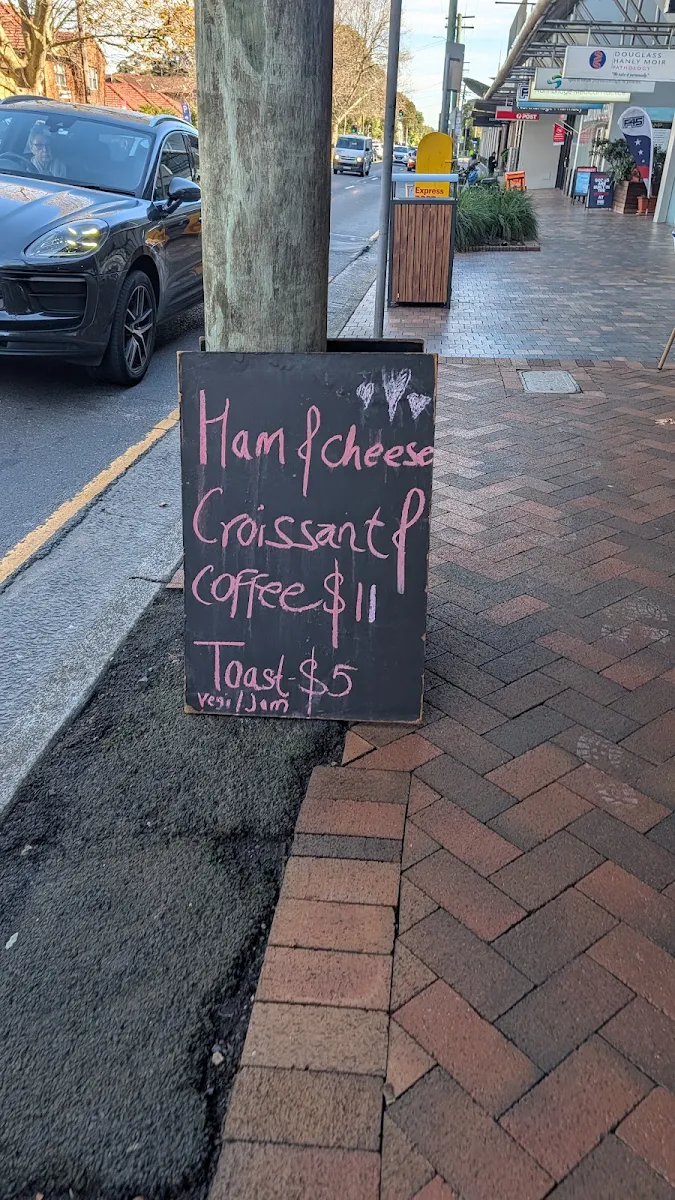 DOUGLASS
HANLY MOIR
PATHOLOGY
POST
F45
Express
Ham & cheese
Croissant &
coffee $11
Toast $5
vegi/Jam